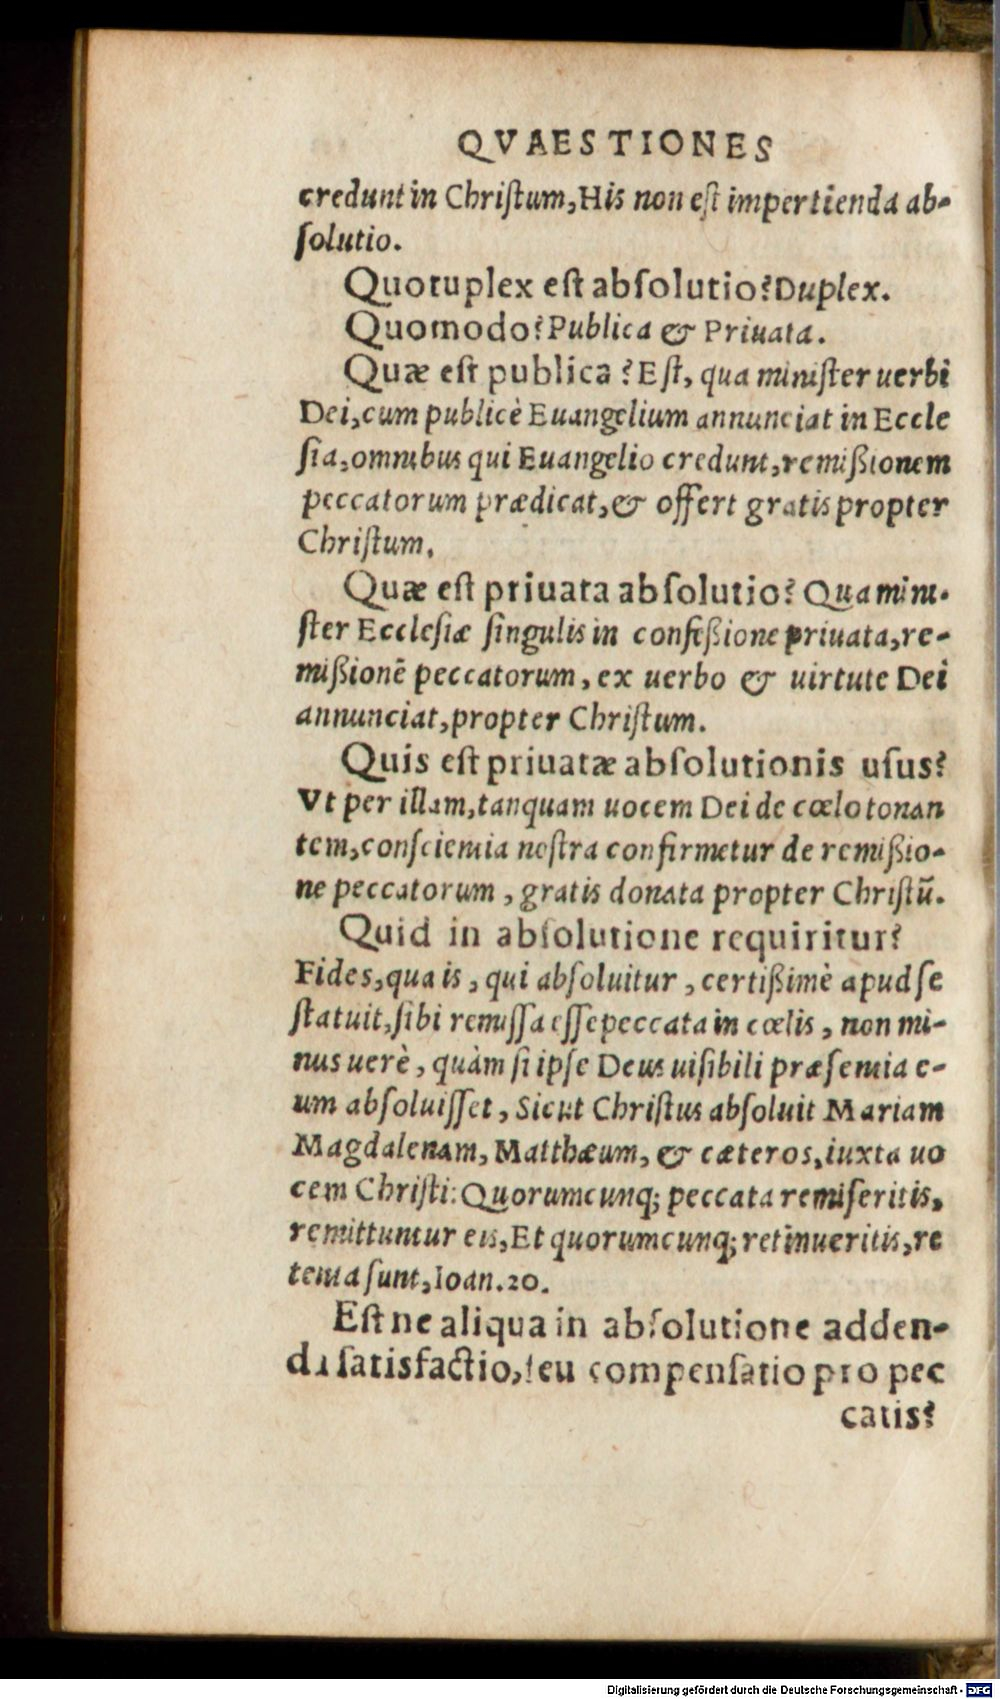 QVAESTIONES
credunt in Chriſtum, His non eſt impertienda ab-
ſolutio.
Quotuplex eſt abſolutio? Duplex.
Quomodo? Publica & Priuata.
Quæ eſt publica? Eſt, qua miniſter uerbi
Dei, cum publicè Euangelium annunciat in Eccle
ſia, omnibus qui Euangelio credunt, remißionem
peccatorum prædicat, & offert gratis propter
Chriſtum.
Quæ eſt priuata abſolutio? Qua mini-
ſter Eccleſiæ ſingulis in confeßione priuata, re-
mißionē peccatorum, ex uerbo & uirtute Dei
annunciat, propter Chriſtum.
Quis eſt priuatæ abſolutionis uſus?
Vt per illam, tanquam uocem Dei de cœlo tonan
tem, conſcientia noſtra confirmetur de remißio-
ne peccatorum, gratis donata propter Chriſtū.
Quid in abſolutione requiritur?
Fides, qua is, qui abſoluitur, certißimè apud ſe
ſtatuit, ſibi remiſſa eſſe peccata in cœlis, non mi-
nus uerè, quàm ſi ipſe Deus uiſibili præſentia e-
um abſoluiſſet, Sicut Chriſtus abſoluit Mariam
Magdalenam, Matthæum, & cæteros, iuxta uo
cem Chriſti: Quorumcunq; peccata remiſeritis,
remittuntur eis, Et quorumcunq; retinueritis, re
tenta ſunt, Ioan. 20.
Eſt ne aliqua in abſolutione adden-
da ſatisfactio, ſeu compenſatio pro pec
catis?
Digitalisierung gefördert durch die Deutsche Forschungsgemeinschaft - DFG